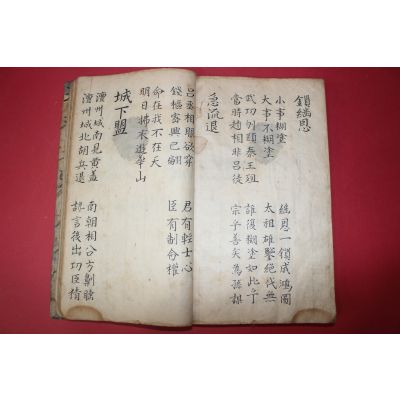 鎖繼恩
小事糊塗 繼恩一鎖成鴻圖
大事不糊塗 太祖雄鑒絶代無
武功列 泰王殂 誰復糊塗如此乎
當時趙相非呂徒 宗子善矣 孫謨
急流退
呂丞相眼欲穿 君有輕士心
錢樞密興已翩 臣有制命權
命在我不在天
明日拂衣遊華山
城下盟
澶州城南見黃蓋 南朝相公方齁睡
澶州城北胡兵退 言後出功臣猜